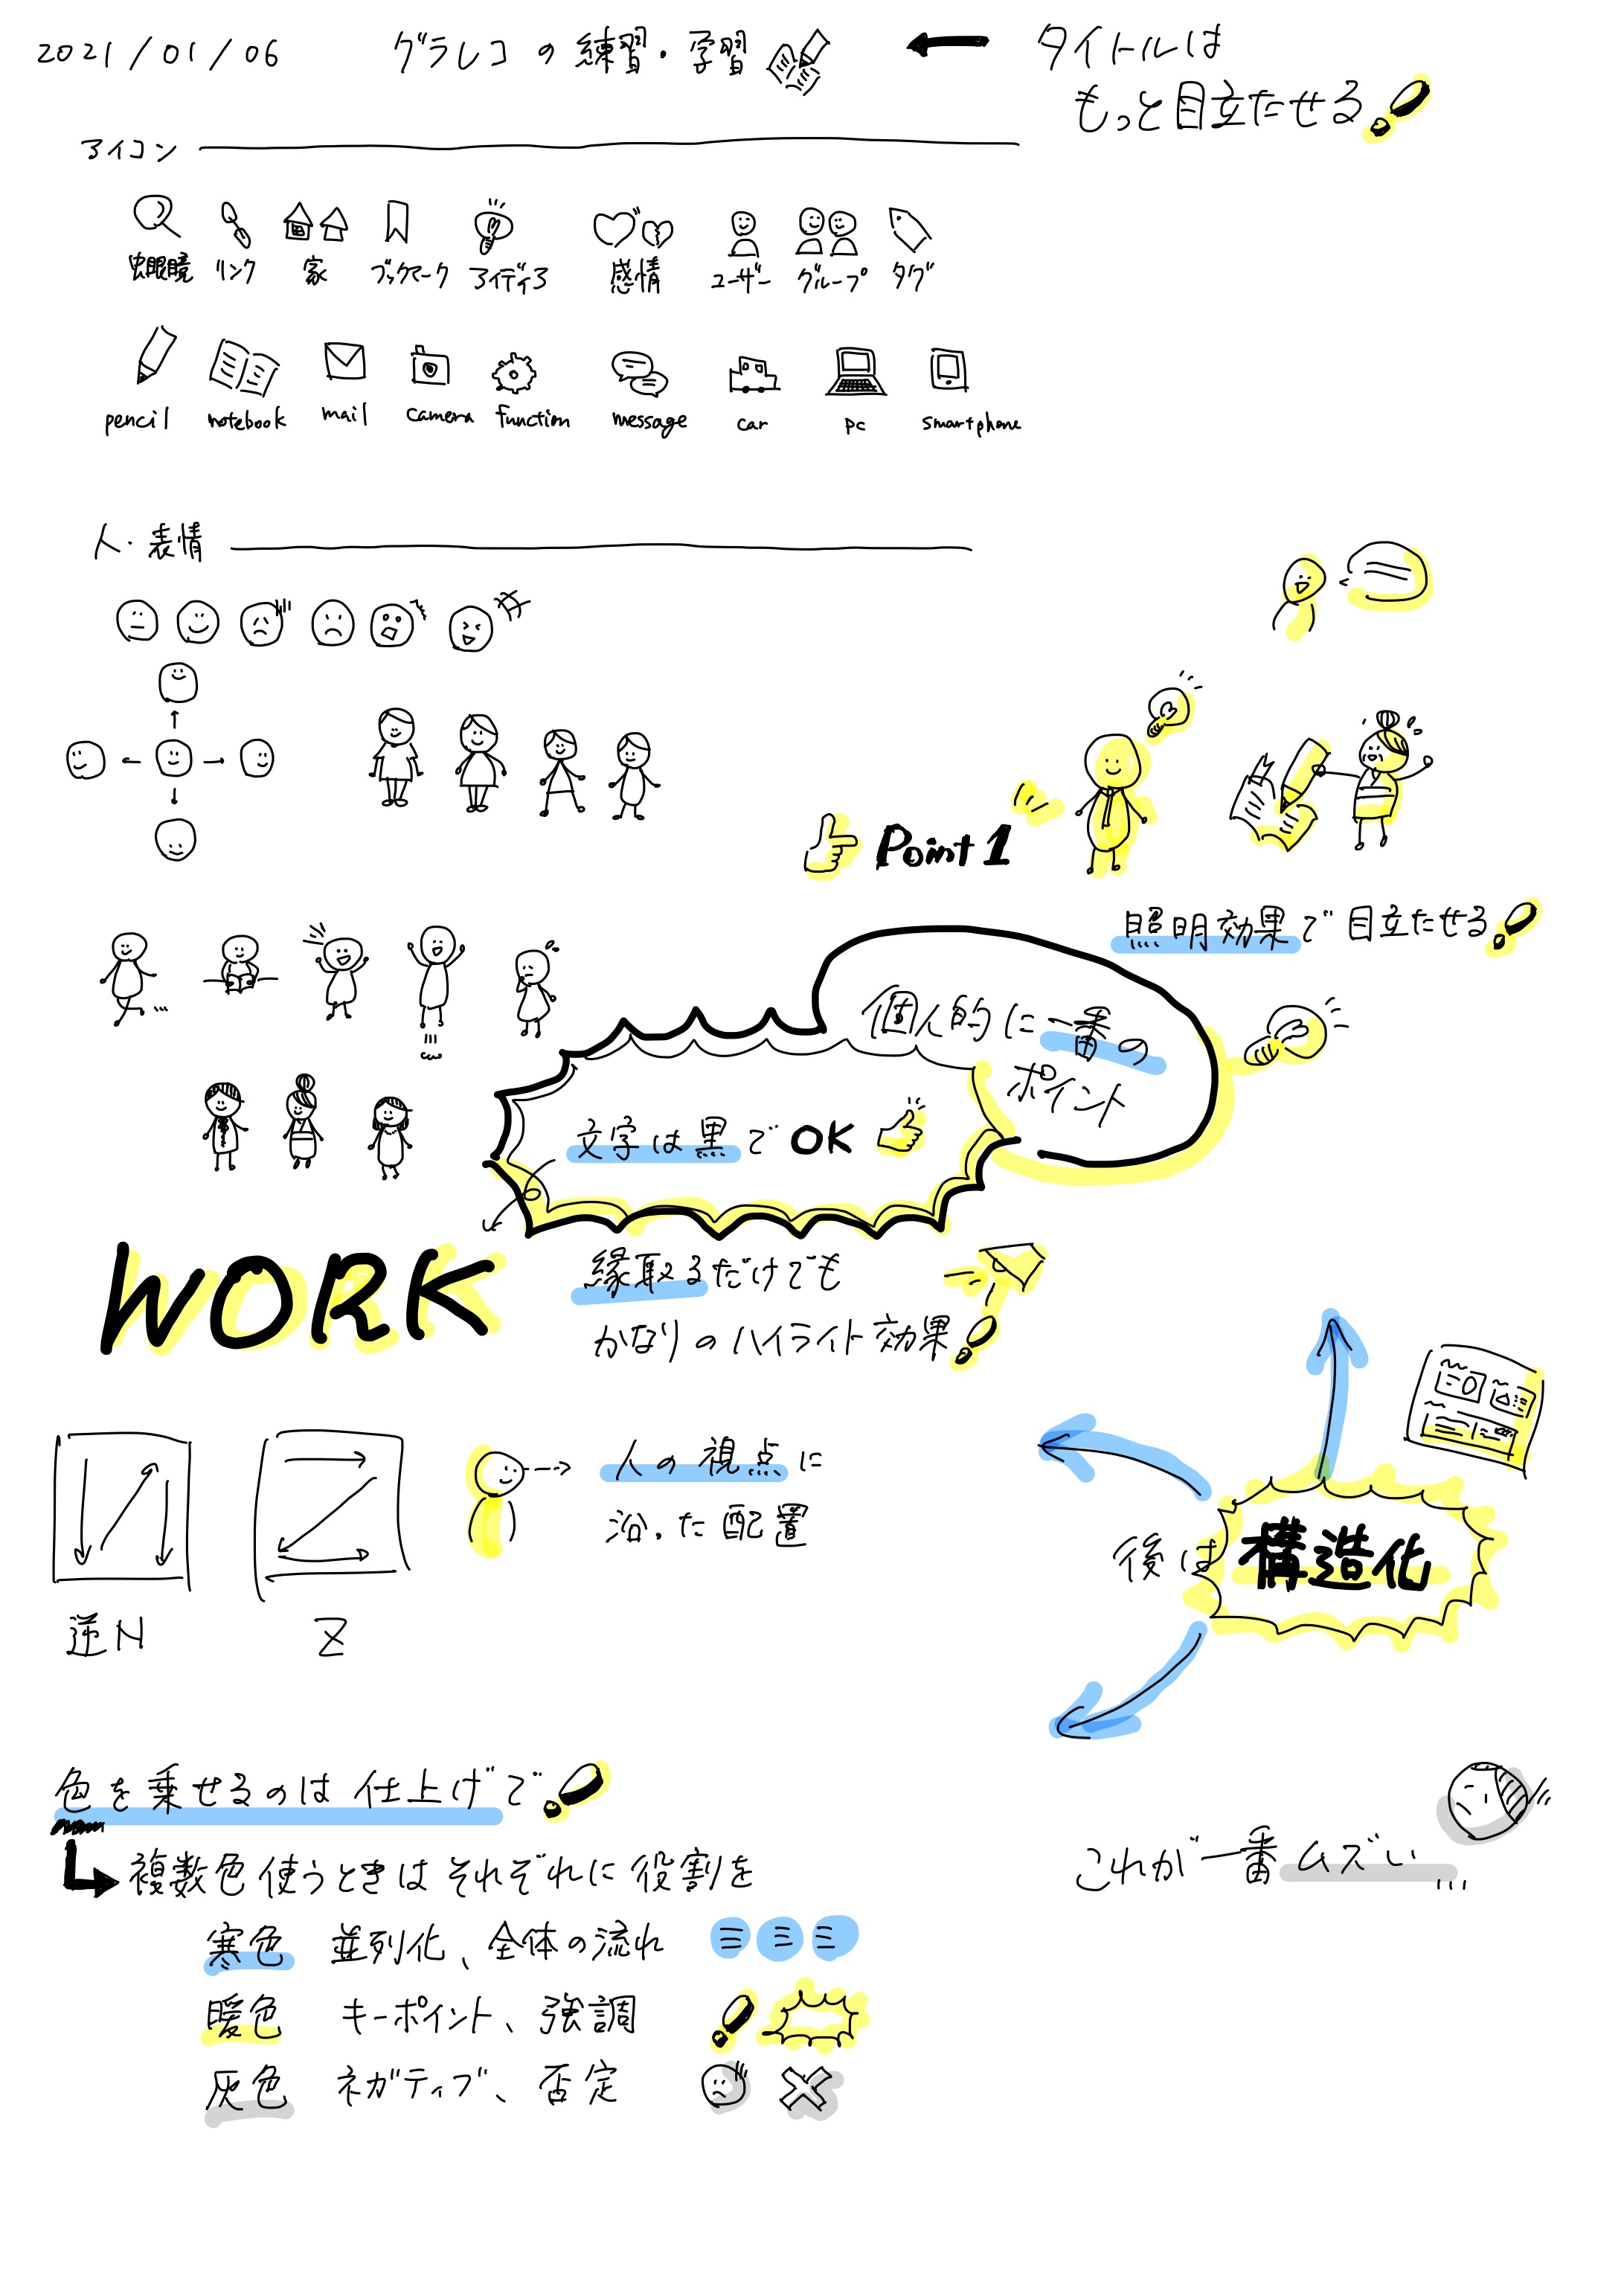 2021/01/06 グラレコの練習・学習
タイトルは
もっと目立たせる!
アイコン
虫眼鏡 リンク 家 ブックマーク アイディア 感情 ユーザー グループ タグ
pencil notebook mail camera function message car pc smartphone
人・表情
Point 1
照明効果で目立たせる!
個人的に一番の
ポイント
文字は黒でOK
WORK
縁取るだけでも
かなりのハイライト効果!
人の視点に
沿った配置
逆N Z
後は構造化
これが一番ムズい...
色を乗せるのは仕上げで!
複数色使うときはそれぞれに役割を
寒色 並列化、全体の流れ
暖色 キーポイント、強調
灰色 ネガティブ、否定